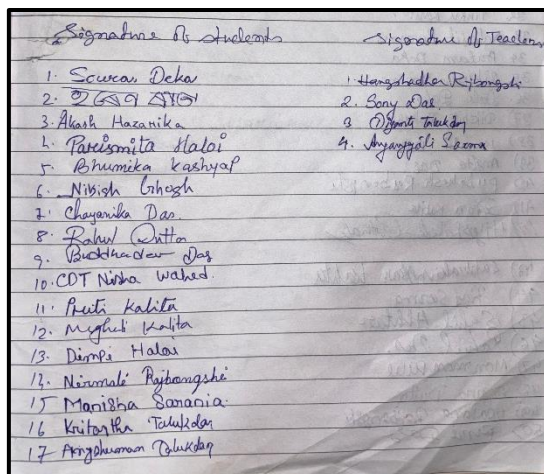 Signature of students
Signature of Teachers
1. Sourav Deka
2.
3. Akash Hazarika
4. Parismita Haloi
5. Bhumika Kashyap
6. Nibish Ghosh
7. Chayanika Das.
8. Rahul Dutta
9. Buddhadev Das
10. CDT Nisha Wahed.
11. Priti Kalita
12. Kalita
13. Dimpi Haloi
14. Nirmali Rajbongshi
15 Manisha Sarania.
16 Kritartha Talukdar
17 Angshuman Talukdar
1. Hangshadhar Rajbongshi
2. Sony Das
3 Talukdar
4. Sarma